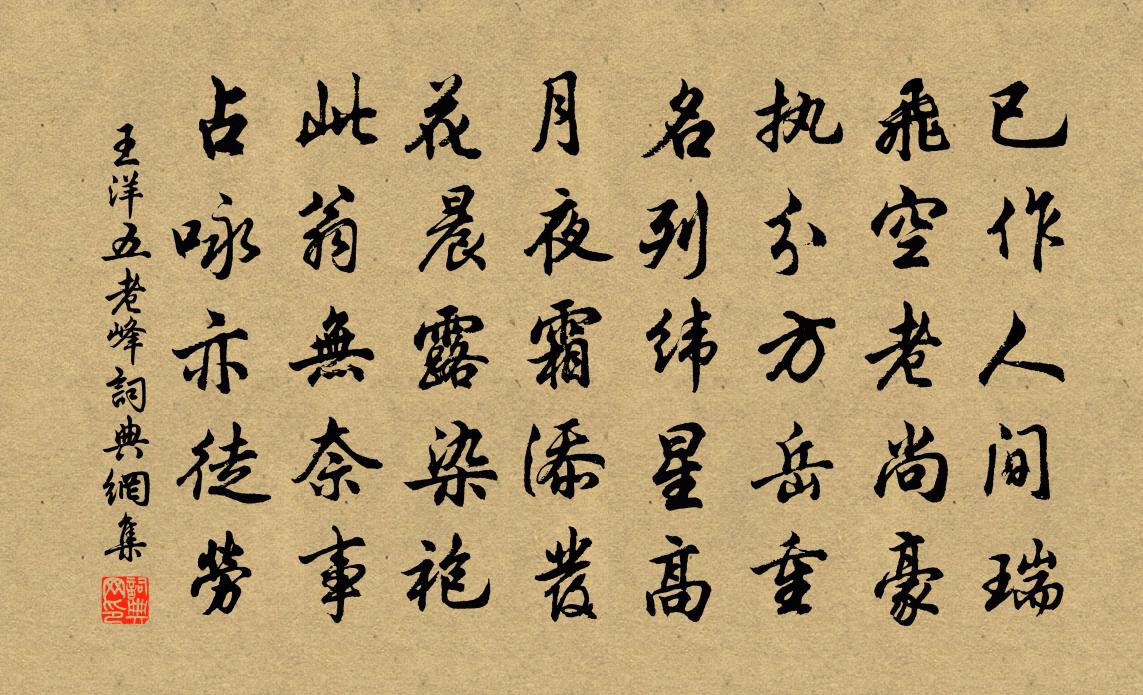 已作人间瑞
飛空老尚豪
执分方岳重
名列纬星高
月夜霜添發
花晨露染袍
此翁無奈事
占咏亦徒勞
王洋五老峰詞典網集
詞典网印